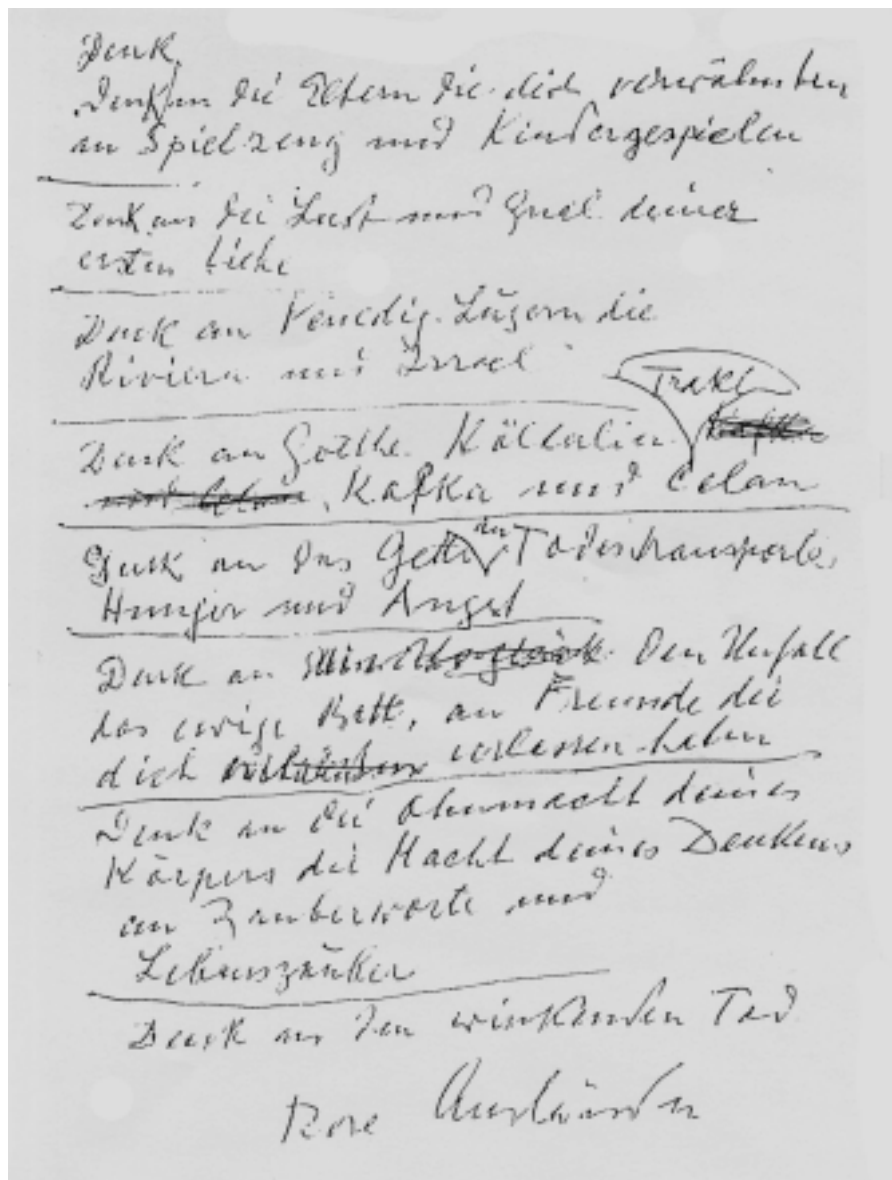 Denk
Denk an die Eltern die dich verwöhnten
an Spielzeug und Kindergespielen
Denk an die Lust und Qual deiner
ersten Liebe
Denk an Venedig Luzern die
Riviera und Israel
Trakl
Denk an Goethe Hölderlin Kafka
und Celan, Kafka und Celan
Denk an das Getto der Todestransporte,
Hunger und Angst
Denk an den Unfall
das ewige Bett, an Freunde die
dich verlassen haben
Denk an die Ohnmacht deines
Körpers die Macht deines Denkens
an Zauberworte und
Denk an den winkenden Tod
Rose Ausländer